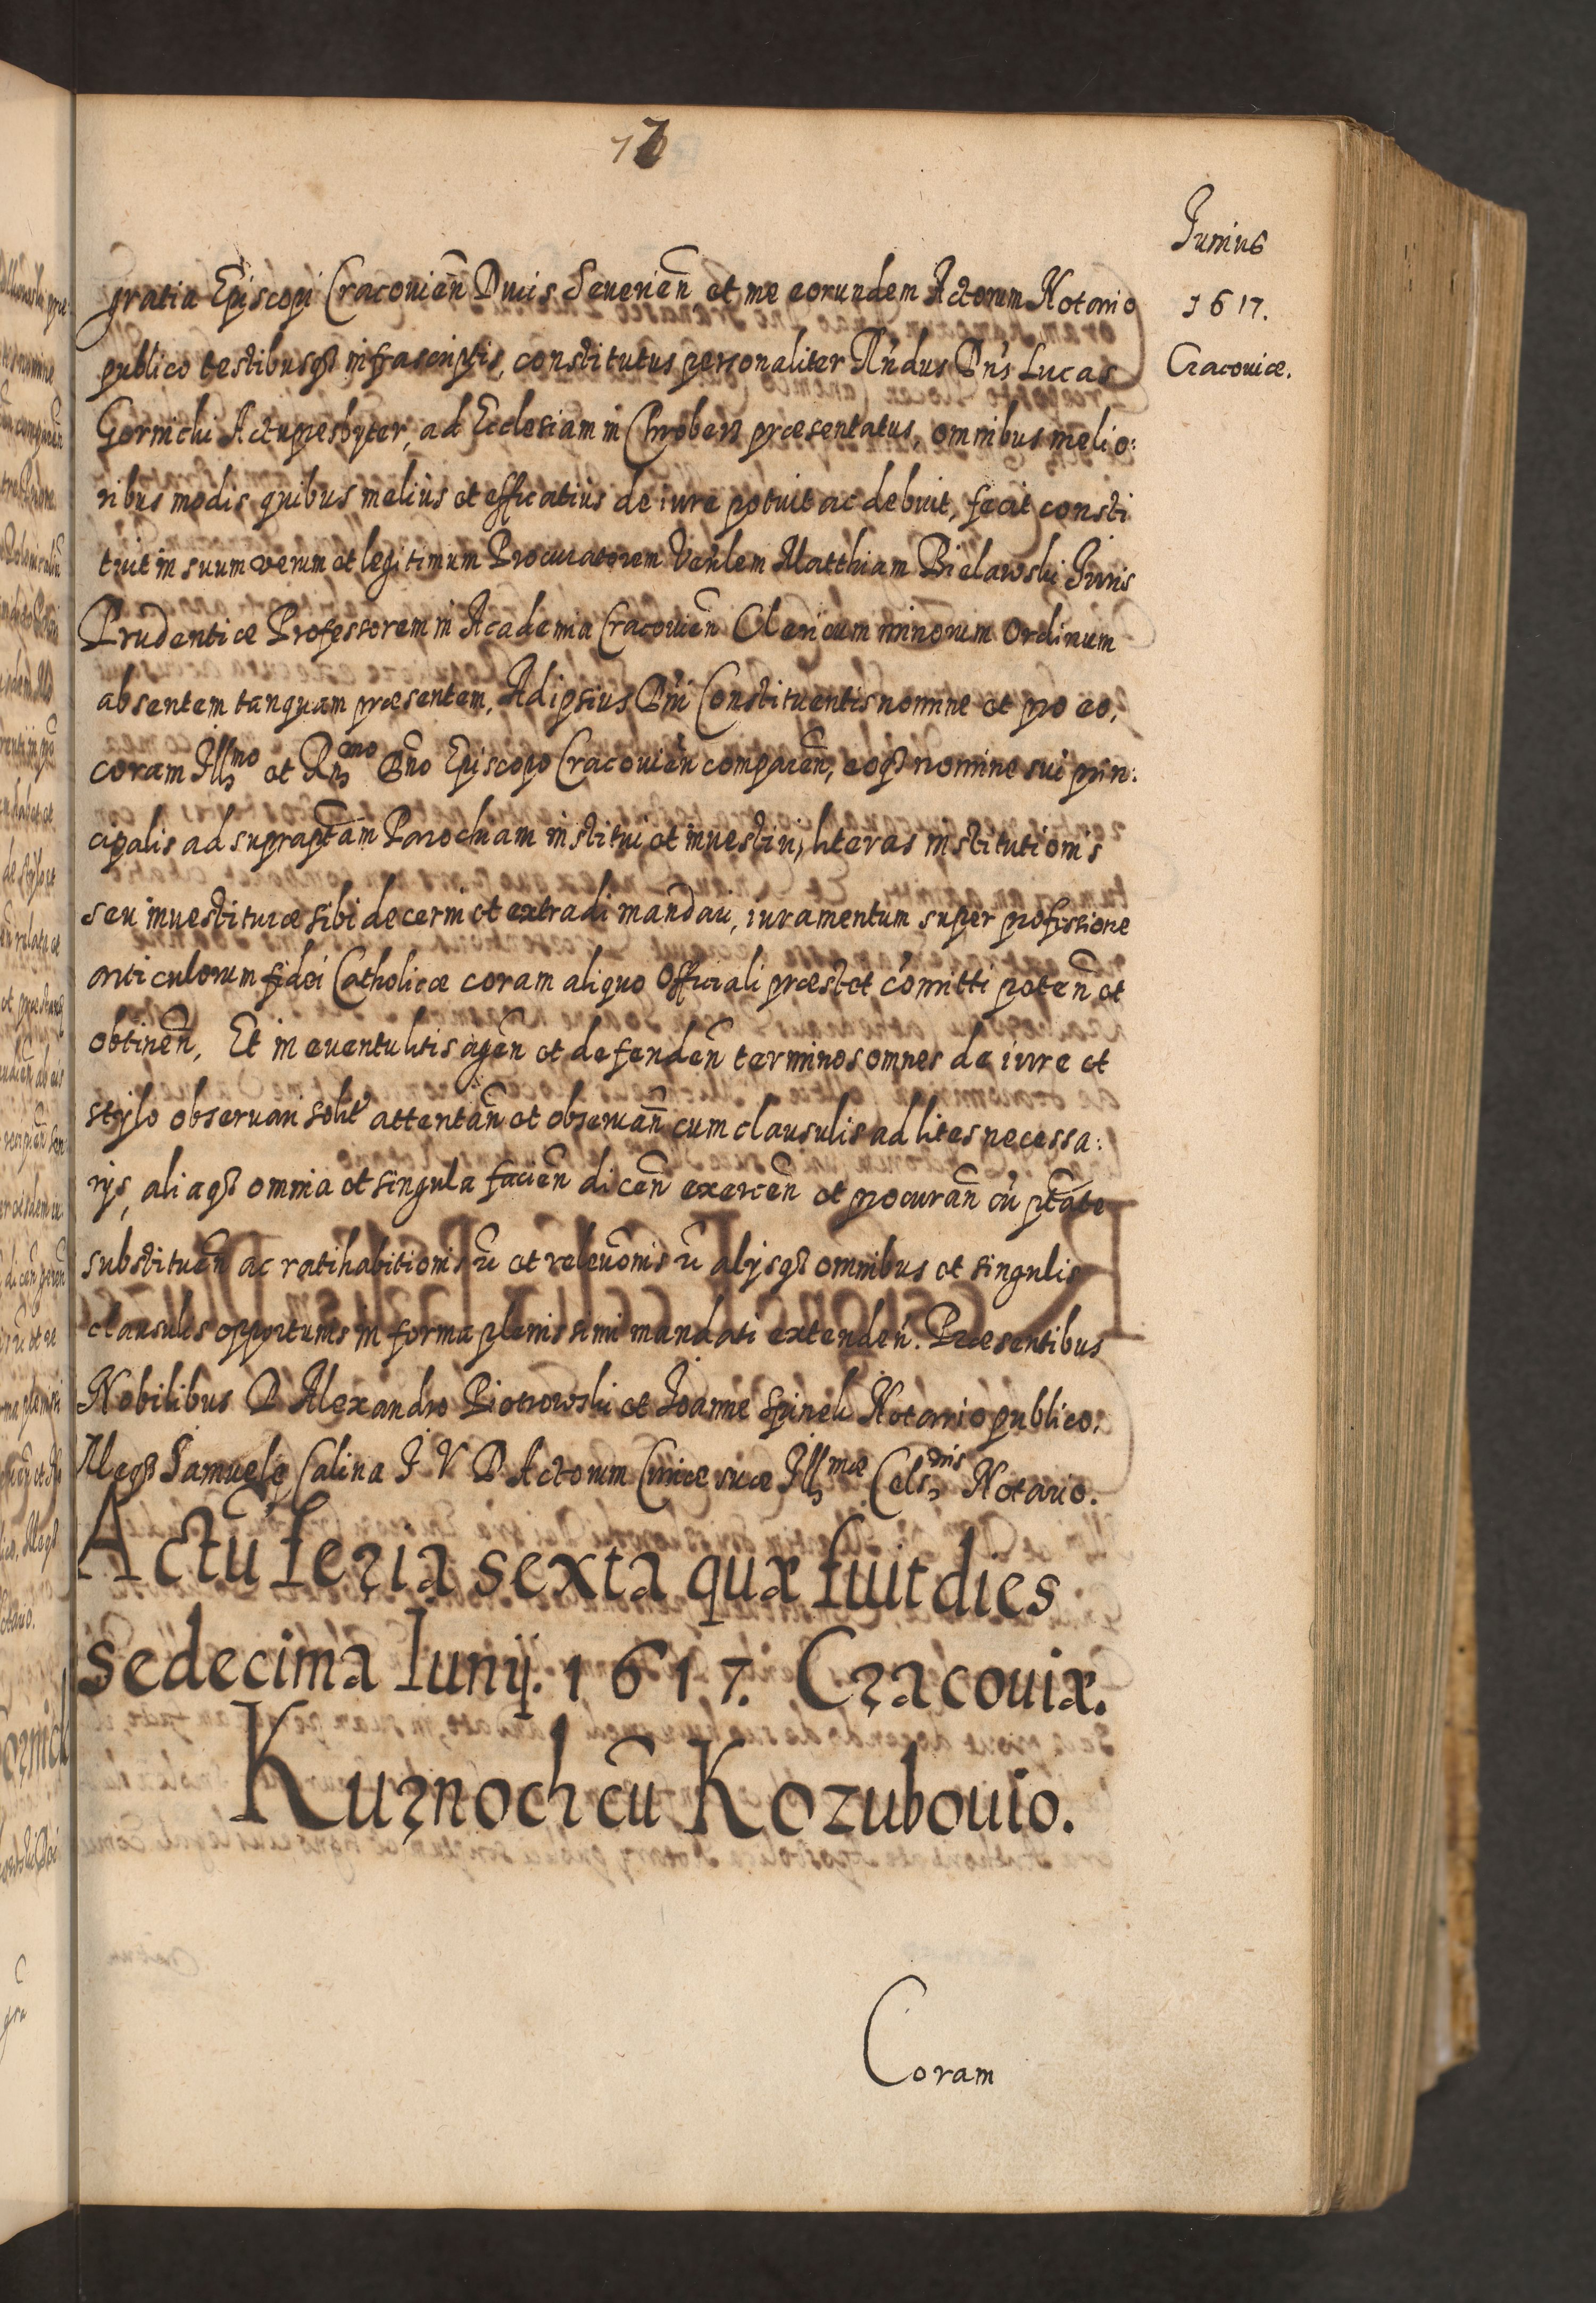 17
Junius
1617.
Cracoviæ.
gratia Episcopi Cracovien̄ Ducis Severien̄ et me eorundem Actorum Notario
publico testibusq3 infrascriptis, constitutus personaliter R̃ndus Dñs Lucas
Gornicki Actupresbyter, ad Ecclesiam in Chrobersz præsentatus, omnibus melio:
ribus modis quibus meliùs et efficatiùs de iure potuit ac debuit, fecit consti
tuit in suum verum et legitimum Procuratorem Venłem Matthiam Bielawski Juris
Prudentiæ Professorem in Academia Cracovien̄ Clericum minorum Ordinum
absentem tanquam præsentem, Ad ipsius Dñi Constituentis nomine et pro eo,
coram Illmo et Rmo Dño Episcopo Cracovien̄ comparen̄, eoq3 nomine sui prin:
cipalis ad suprap̄tam Parochiam institui et investiri, literas institutionis
seu investituræ sibi decerni et extradi mandari, iuramentum super professione
articulorum fidei Catholicæ coram aliquo Officiali præstet com̃itti poten̄ et
obtinen̄, Et in eventu litis agen̄ et defenden̄ terminos omnes de iure et
stylo observari solit' attentan̄ et observan̄ cum clausulis ad lites necessa:
rijs, aliaq3 omnia et singula facien̄ dicen̄ exercen̄ et procuran̄ cũ p̄tate
substituen̄ ac ratihabitionis ũ et relevõnis ũ alijsq3 omnibus et singulis
clausulis opportunis in forma plenissimi mandati extenden̄. Præsentibus
Nobilibus D Alexandro Piotrowski et Joanne Spinek Notario publico,
Meq3 Samuele Calina J V D Actorum Curiæ suæ Illmæ Celsdnis Notario.
Actũ feria sexta quæ fuit dies
sedecima Iunij. 1617. Cracouiæ.
Kurnoch cũ Kozubouio.
Coram